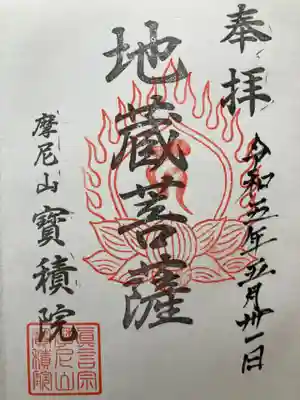 奉拝
令和五年五月卅一日
地蔵菩薩
摩尼山 寶積院
眞言宗
摩尼山
寶積院